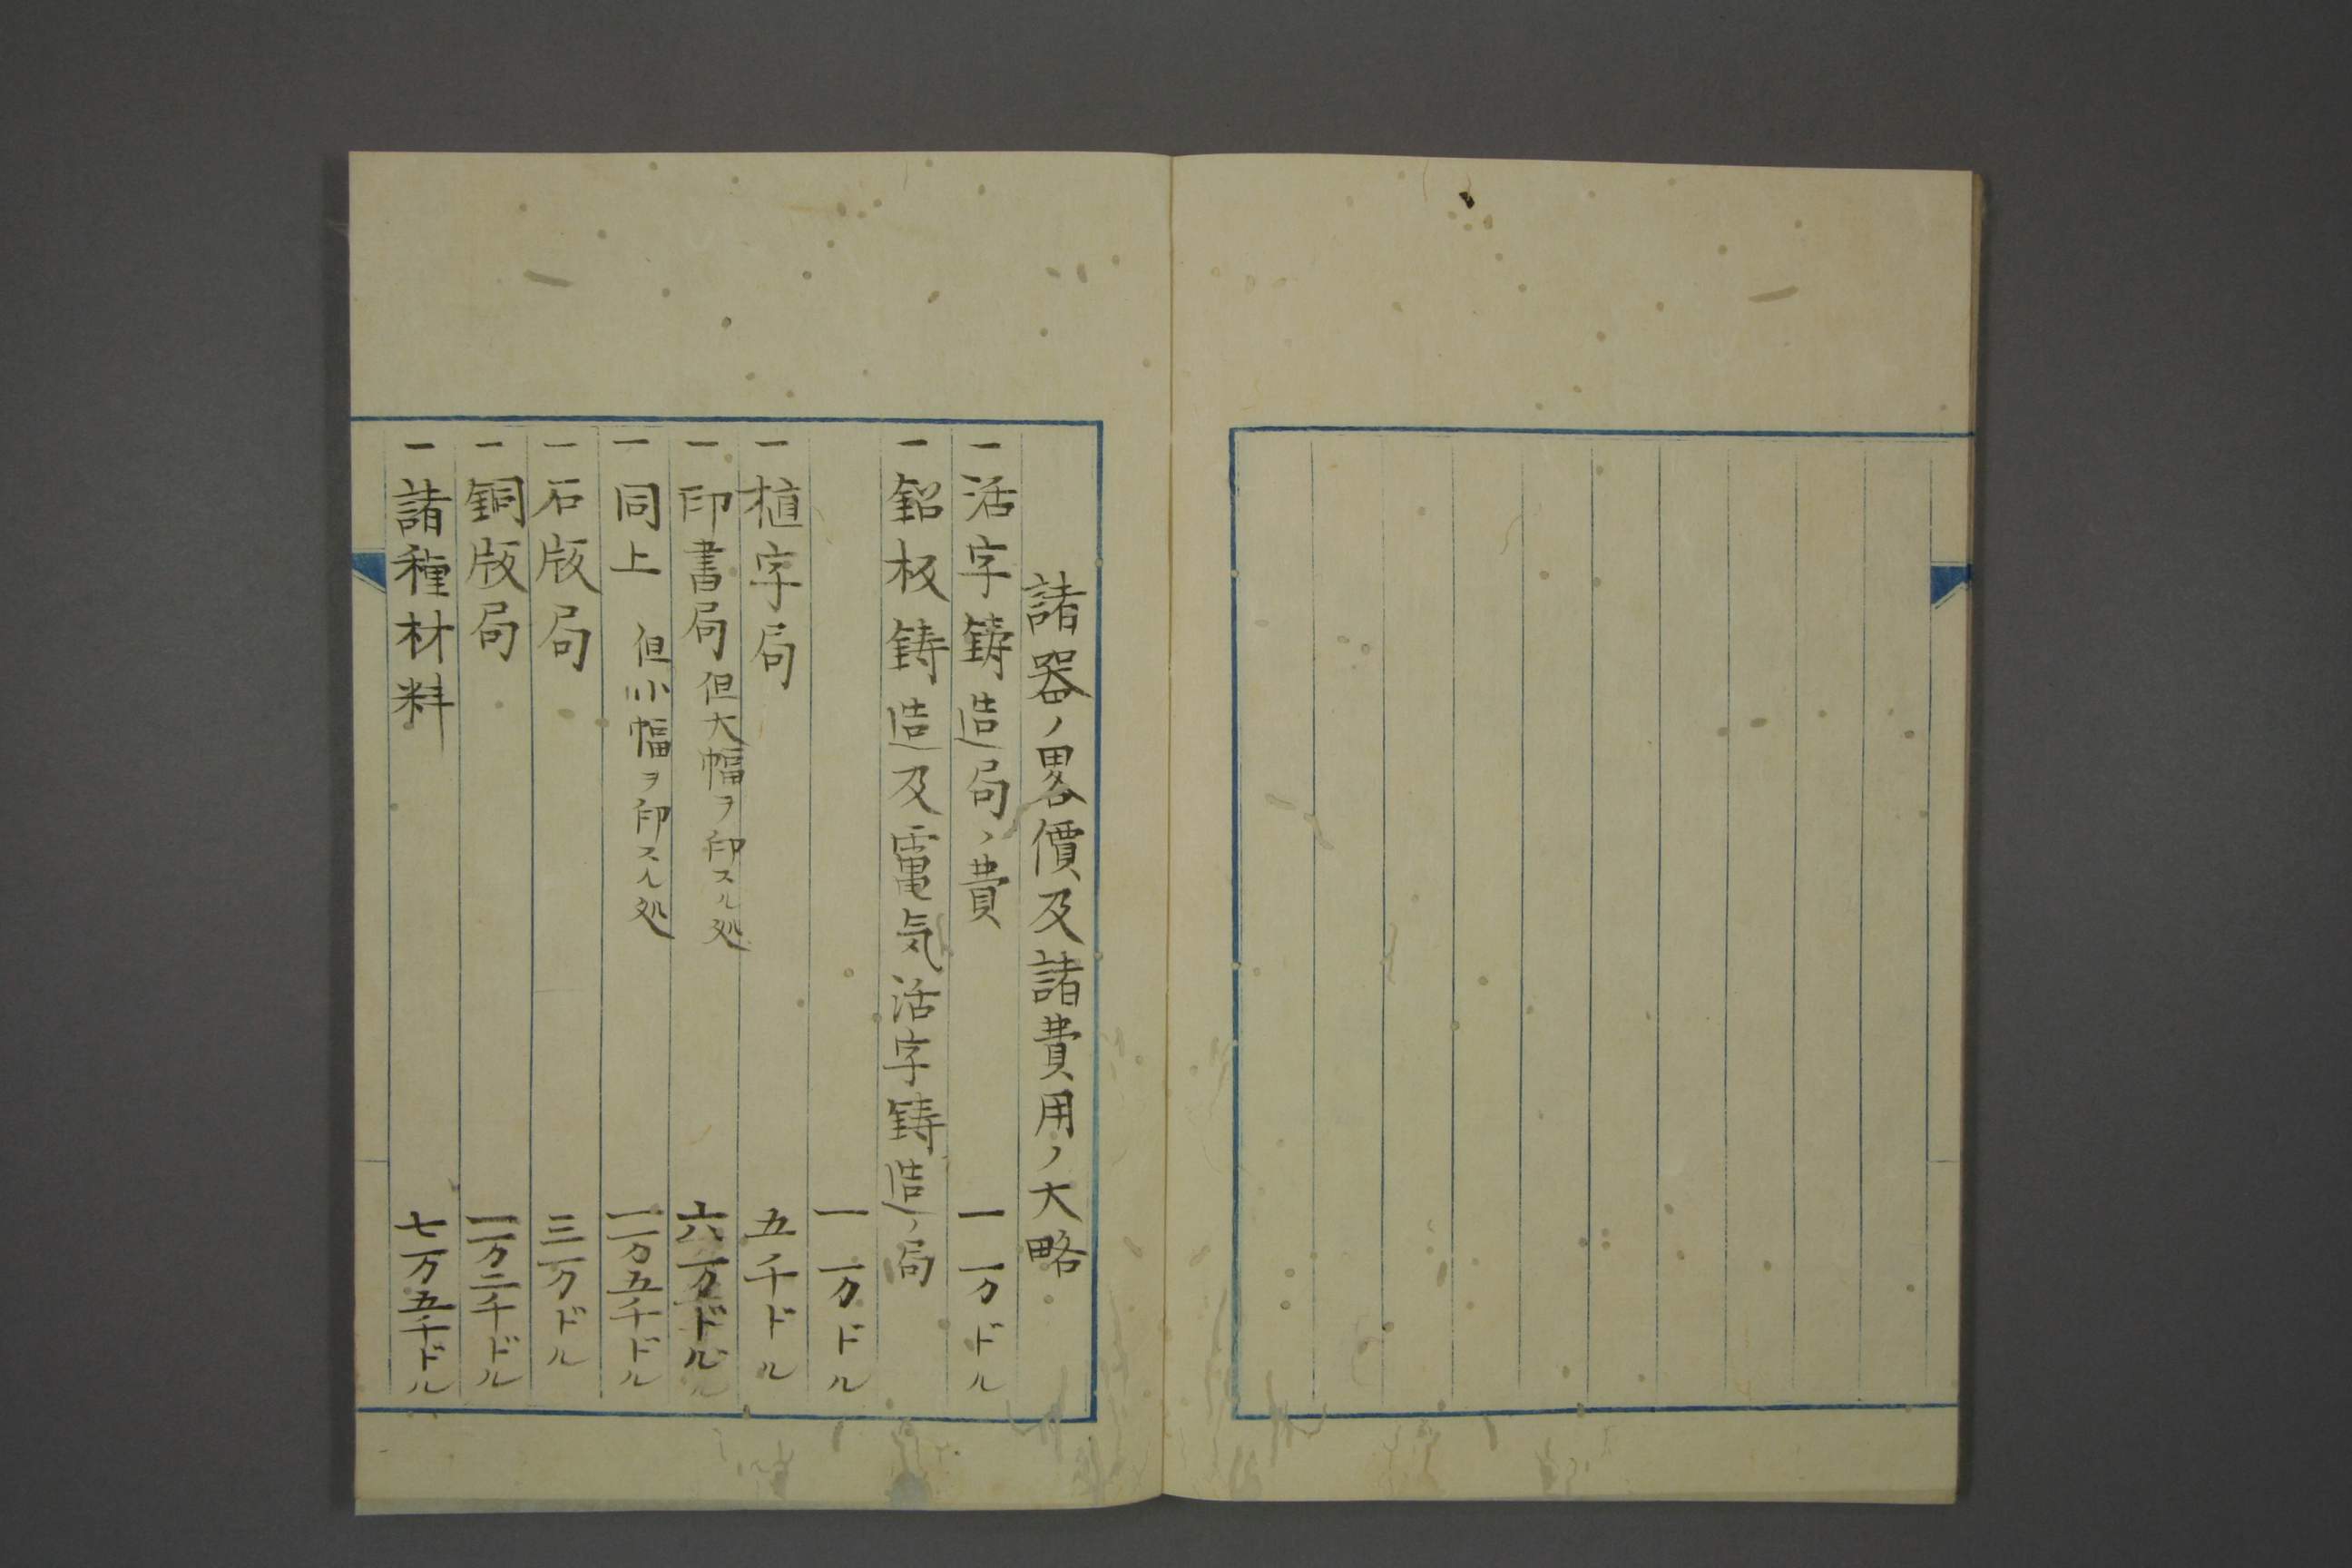 諸器ノ畧價及諸費用ノ大略
一活字鋳造局ノ費 一万ドル
一鉛板鋳造及電気活字鋳造ノ局
一万ドル
一植字局 五千ドル
一印書局但大幅ヲ印スル処 六万ドル
一同上 但小幅ヲ印スル処 一万五千ドル
一石版局 三万ドル
一銅版局 一万二千ドル
一諸種材料 七万五千ドル